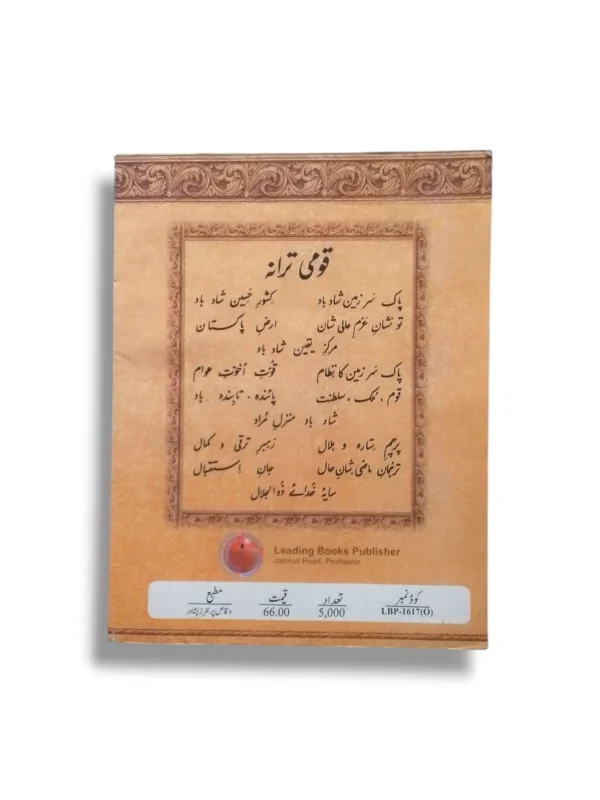 قومی ترانہ
پاک سرزمین شاد باد کشورِ حسین شاد باد
تو نشانِ عزمِ عالی شان ارضِ پاکستان
مرکزِ یقین شاد باد
پاک سرزمین کا نظام قوّتِ اُخوّتِ عوام
قوم ، ملک ، سلطنت پائندہ ، تابندہ باد
شاد باد منزلِ مُراد
پرچمِ ستارہ و ہلال رہبرِ ترقی و کمال
ترجمانِ ماضی شانِ حال جانِ اِستقبال
سایۂ خُدائے ذوالجلال
Leading Books Publisher
Jamrud Road, Peshawar
کوڈ نمبر تعداد قیمت مطبع
LBP-1617(O) 5,000 66.00 وقاص پرنٹرز پشاور